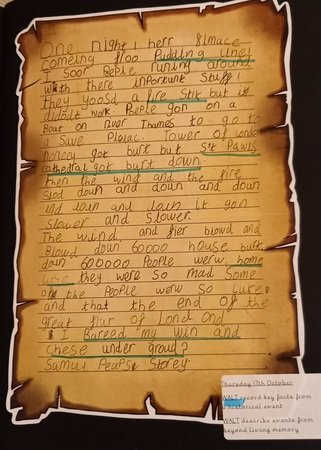 One night I herr flmuce
comeing froo Pudding Lane!
I Soor Beple runing around
With there inportant Stuff!
they yoosd a fire Stik but it
didodt work. Beple gon on a
Boat on River Thames to go to
a Save Plaiac. Tower of London
nonody got burt but Snt Pawls
cathedral got burt down
then the wind and the fire
Slod down and down and down
and down and down it gon
Slower and Slower.
The wind and fier blowd and
Blowd down 60000 house burt
down 600000 People werw home
they were so mad Some
of the People werw So
and that the end of the
great fiur of Lond Ond
I Bareed my win and
Chese under groud?
Sumus Peupse Storey
Thursday 17th October
WALT record key facts from
a historical event
WALT describe events from
beyond living memory